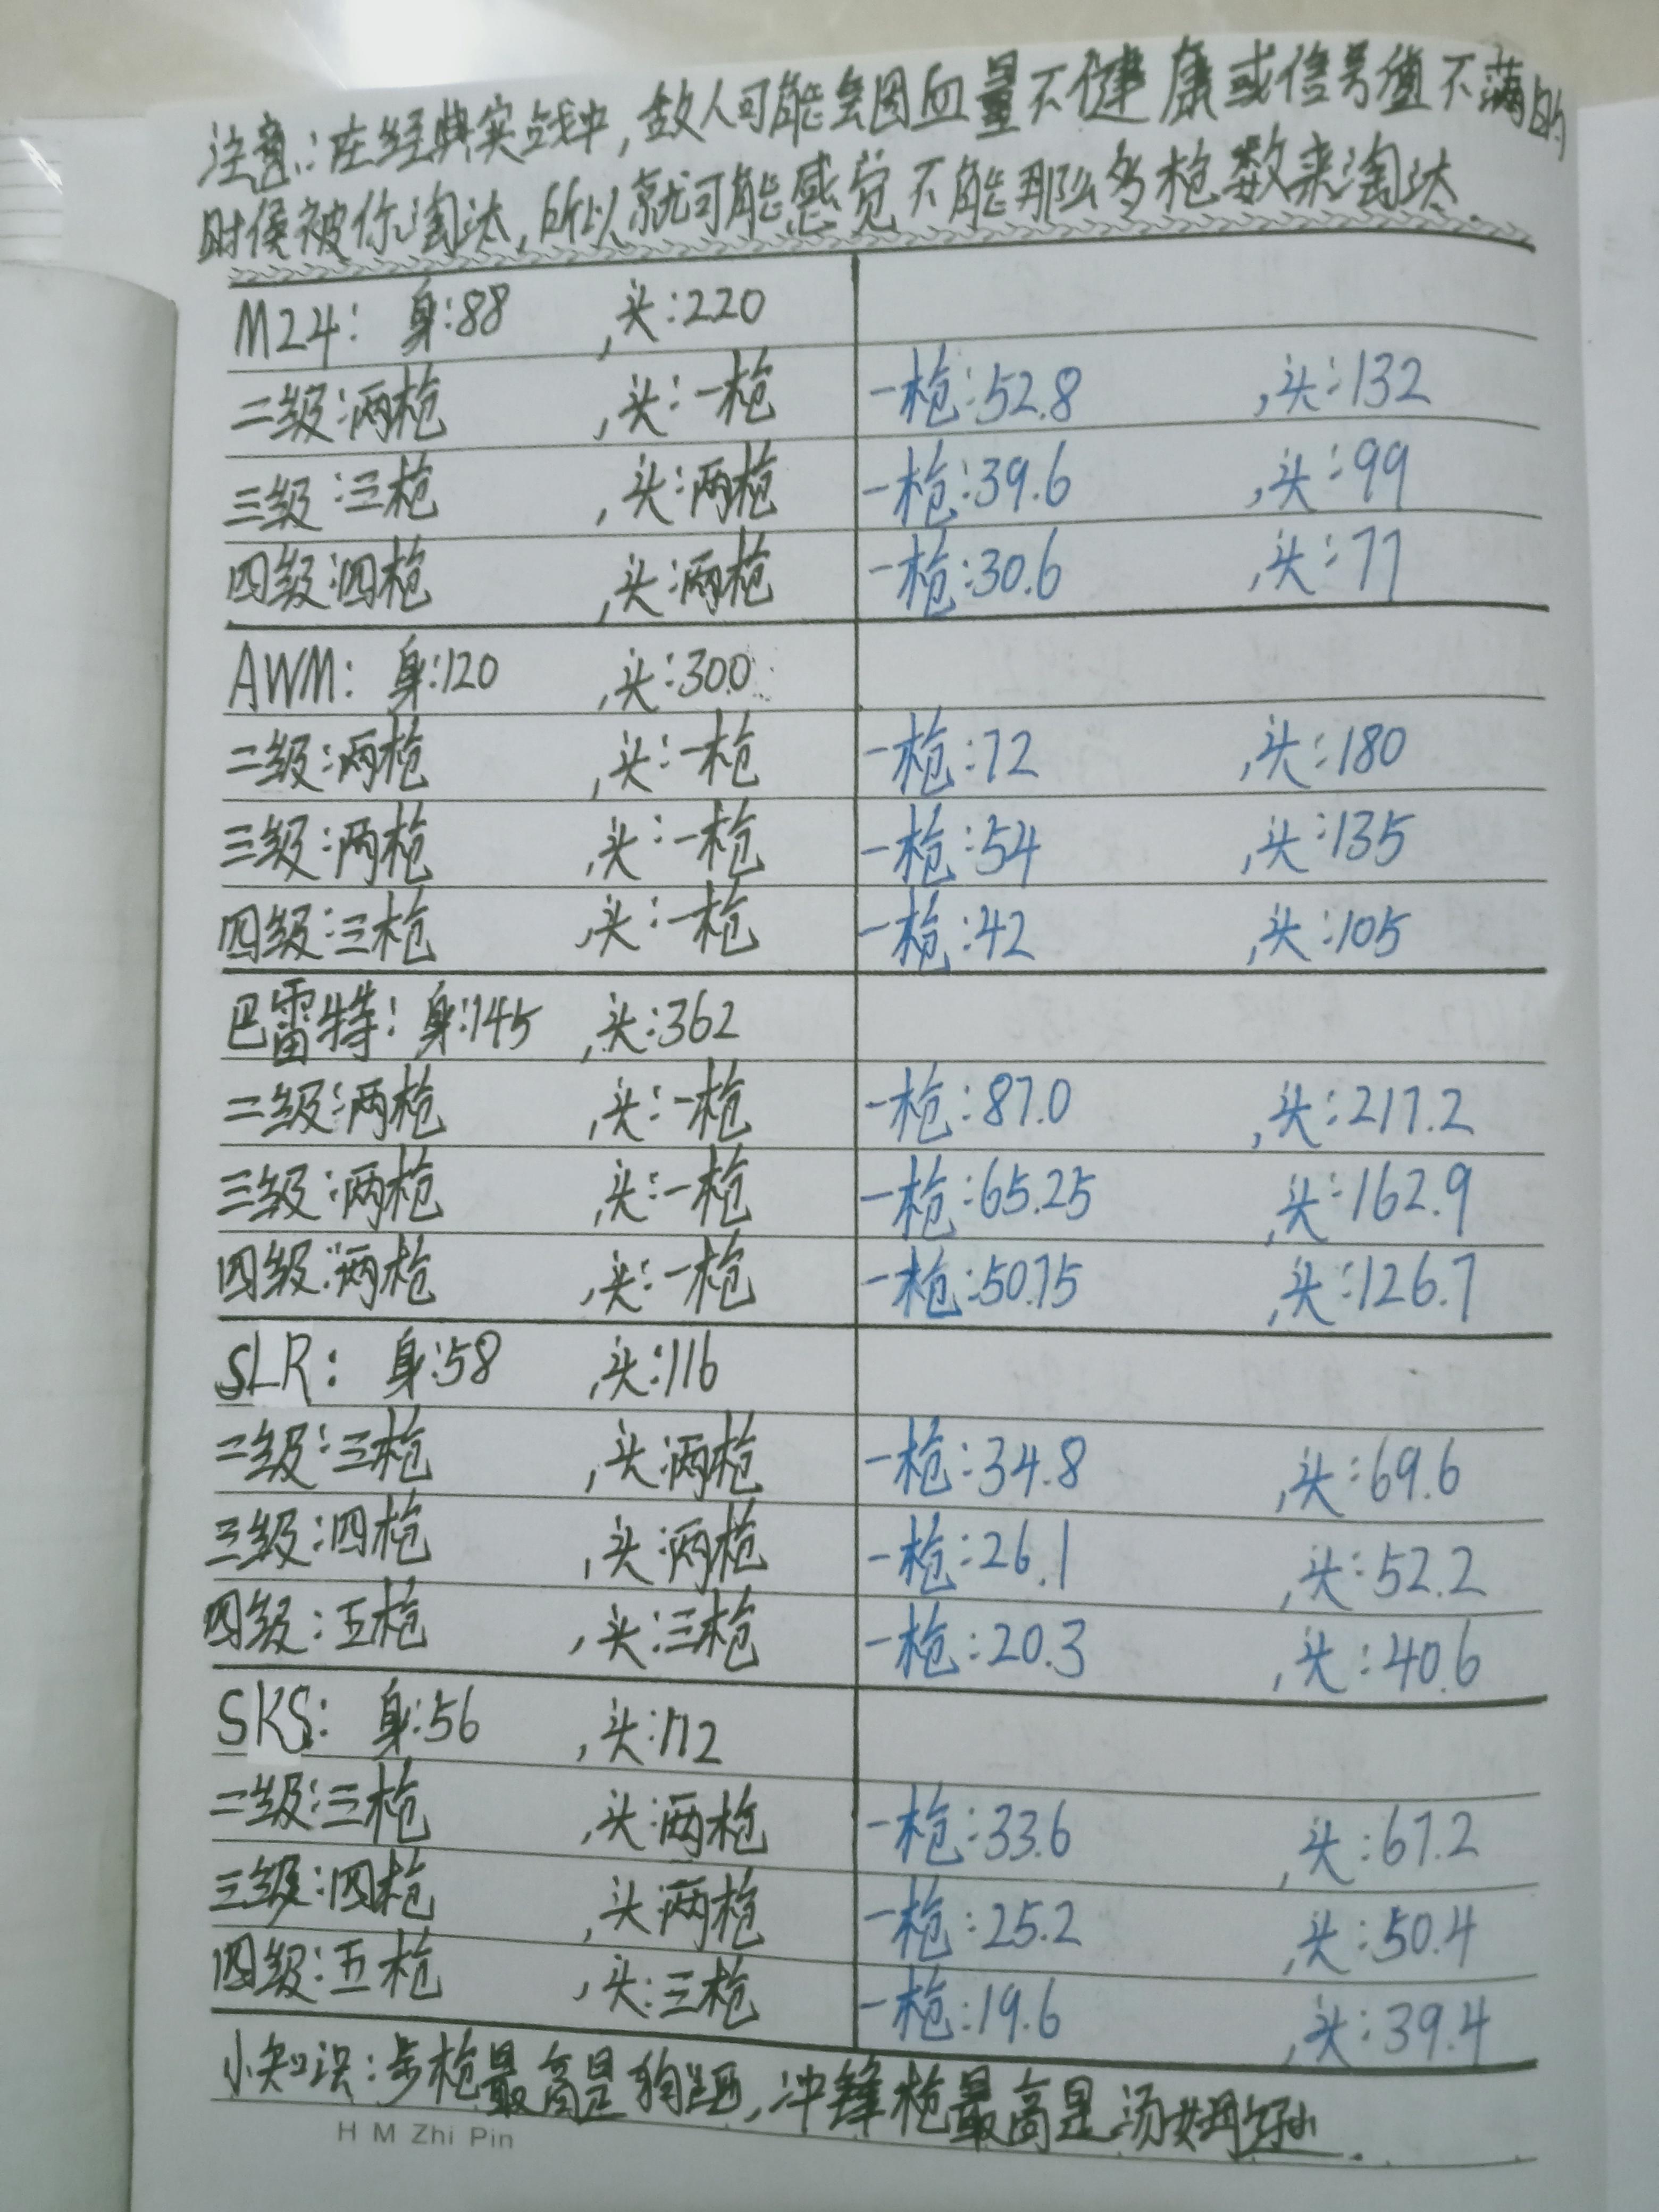 注意:在经典实战中,敌人可能会因血量不健康或信号值不满的
时候被你淘汰,所以就可能感觉不能那么多枪数来淘汰.
M24: 身:88 ,头:220
二级:两枪 ,头:一枪 一枪:52.8 ,头:132
三级:三枪 ,头:两枪 一枪:39.6 ,头:99
四级:四枪 ,头:两枪 一枪:30.6 ,头:77
AWM: 身:120 ,头:300
二级:两枪 ,头:一枪 一枪:72 ,头:180
三级:两枪 ,头:一枪 一枪:54 ,头:135
四级:三枪 ,头:一枪 一枪:42 ,头:105
巴雷特: 身:145 ,头:362
二级:两枪 ,头:一枪 一枪:87.0 ,头:217.2
三级:两枪 ,头:一枪 一枪:65.25 ,头:162.9
四级:两枪 ,头:一枪 一枪:50.75 ,头:126.7
SLR: 身:58 ,头:116
二级:三枪 ,头:两枪 一枪:34.8 ,头:69.6
三级:四枪 ,头:两枪 一枪:26.1 ,头:52.2
四级:五枪 ,头:三枪 一枪:20.3 ,头:40.6
SKS: 身:56 ,头:112
二级:三枪 ,头:两枪 一枪:33.6 ,头:67.2
三级:四枪 ,头:两枪 一枪:25.2 ,头:50.4
四级:五枪 ,头:三枪 一枪:19.6 ,头:39.4
小知识:步枪最高是狗跎,冲锋枪最高是汤姆孙.
H M Zhi Pin